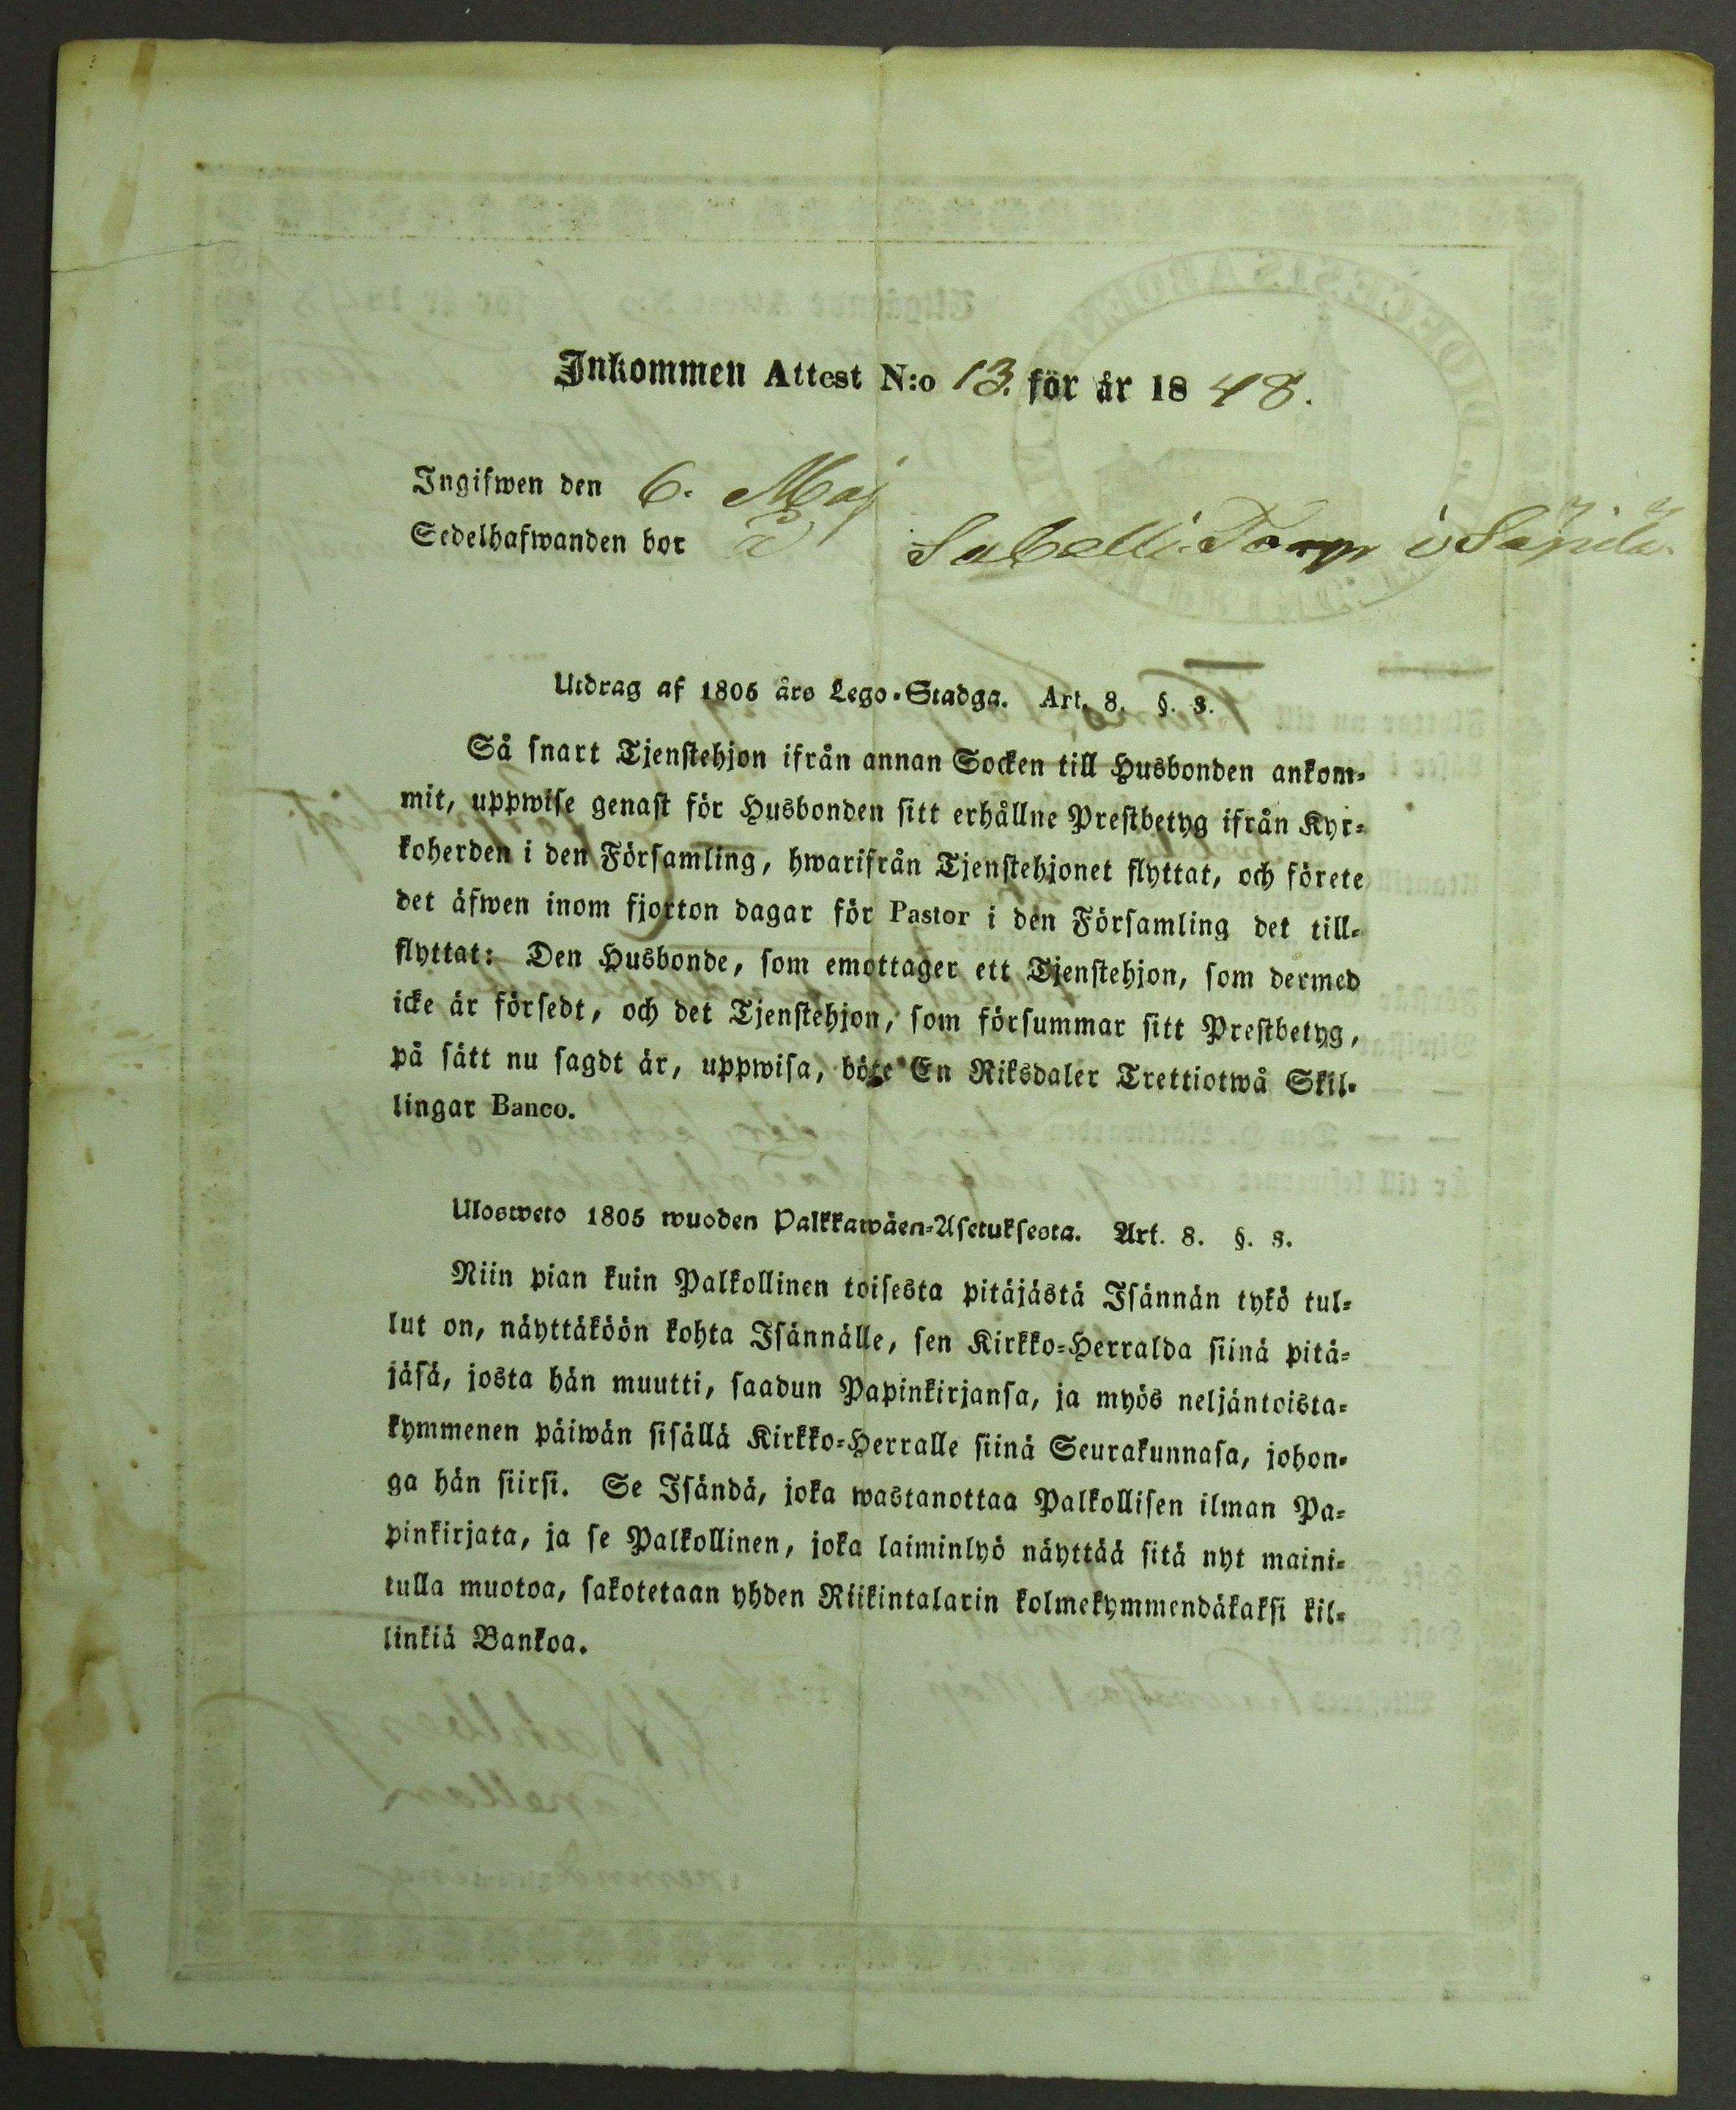 Inkommen Attest N:o 13. för år 1848.
Ingifwen den 6. Maj
Sedelhafwanden bor å Sabelli Torp i Säpilä
Utdrag af 1805 års Lego-Stadga. Art. 8. §. 3.
Så snart Tjenstehjon ifrån annan Socken till Husbonden ankom-
mit, uppwise genast för Husbonden sitt erhållne Prestbetyg ifrån Kyr-
koherden i den Församling, hwarifrån Tjenstehjonet flyttat, och förete
det äfwen inom fjorton dagar för Pastor i den Församling det till-
flyttat: Den Husbonde, som emottager ett Tjenstehjon, som dermed
icke är försedt, och det Tjenstehjon, som försummar sitt Prestbetyg,
på sätt nu sagdt är, uppwisa, böte En Riksdaler Trettiotwå Skil-
lingar Banco.
Ulosweto 1805 wuoden Palkkawäen-Asetuksesta. Art. 8. §. 3.
Niin pian kuin Palkollinen toisesta pitäjästä Isännän tykö tul-
lut on, näyttäköön kohta Isännälle, sen Kirkko-Herralda siinä pitä-
jäsä, josta hän muutti, saadun Papinkirjansa, ja myös neljäntoista-
kymmenen päiwän sisällä Kirkko-Herralle siinä Seurakunnasa, johon-
ga hän siirsi. Se Isändä, joka wastanottaa Palkollisen ilman Pa-
pinkirjata, ja se Palkollinen, joka laiminlyö näyttää sitä nyt maini-
tulla muotoa, sakotetaan yhden Riikintalarin kolmekymmendäkaksi kil-
linkiä Bankoa.